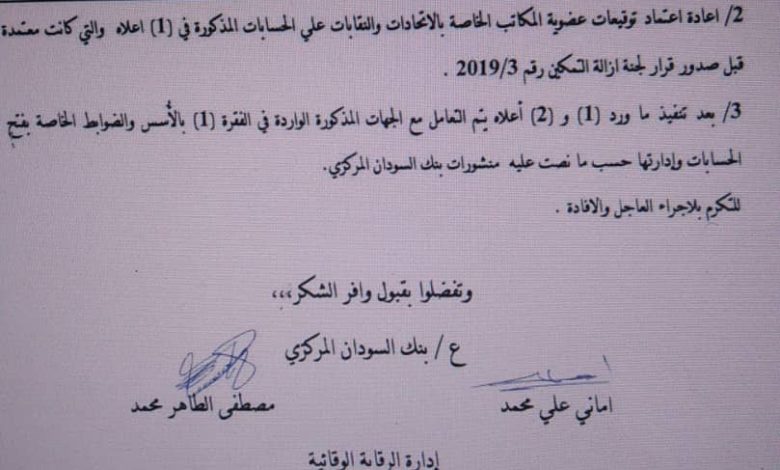 2/ اعادة اعتماد توقيعات عضوية المكاتب الخاصة بالاتحادات والنقابات علي الحسابات المذكورة في (1) اعلاه والتي كانت معتمدة
قبل صدور قرار لجنة ازالة التمكين رقم 2019/3 .
3/ بعد تنفيذ ما ورد (1) و (2) أعلاه يتم التعامل مع الجهات المذكورة الواردة في الفقرة (1) بالأسس والضوابط الخاصة بفتح
الحسابات وإدارتها حسب ما نصت عليه منشورات بنك السودان المركزي.
للتكرم بلاجراء العاجل والافادة .
وتفضلوا بقبول وافر الشكر،،،
ع / بنك السودان المركزي
اماني علي محمد مصطفى الطاهر محمد
إدارة الرقابة الوقائية